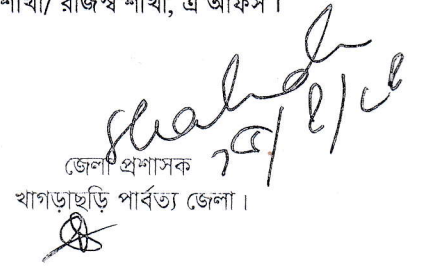 শাখা/ রাজস্ব শাখা, এ অফিস।
জেলা প্রশাসক
খাগড়াছড়ি পার্বত্য জেলা।